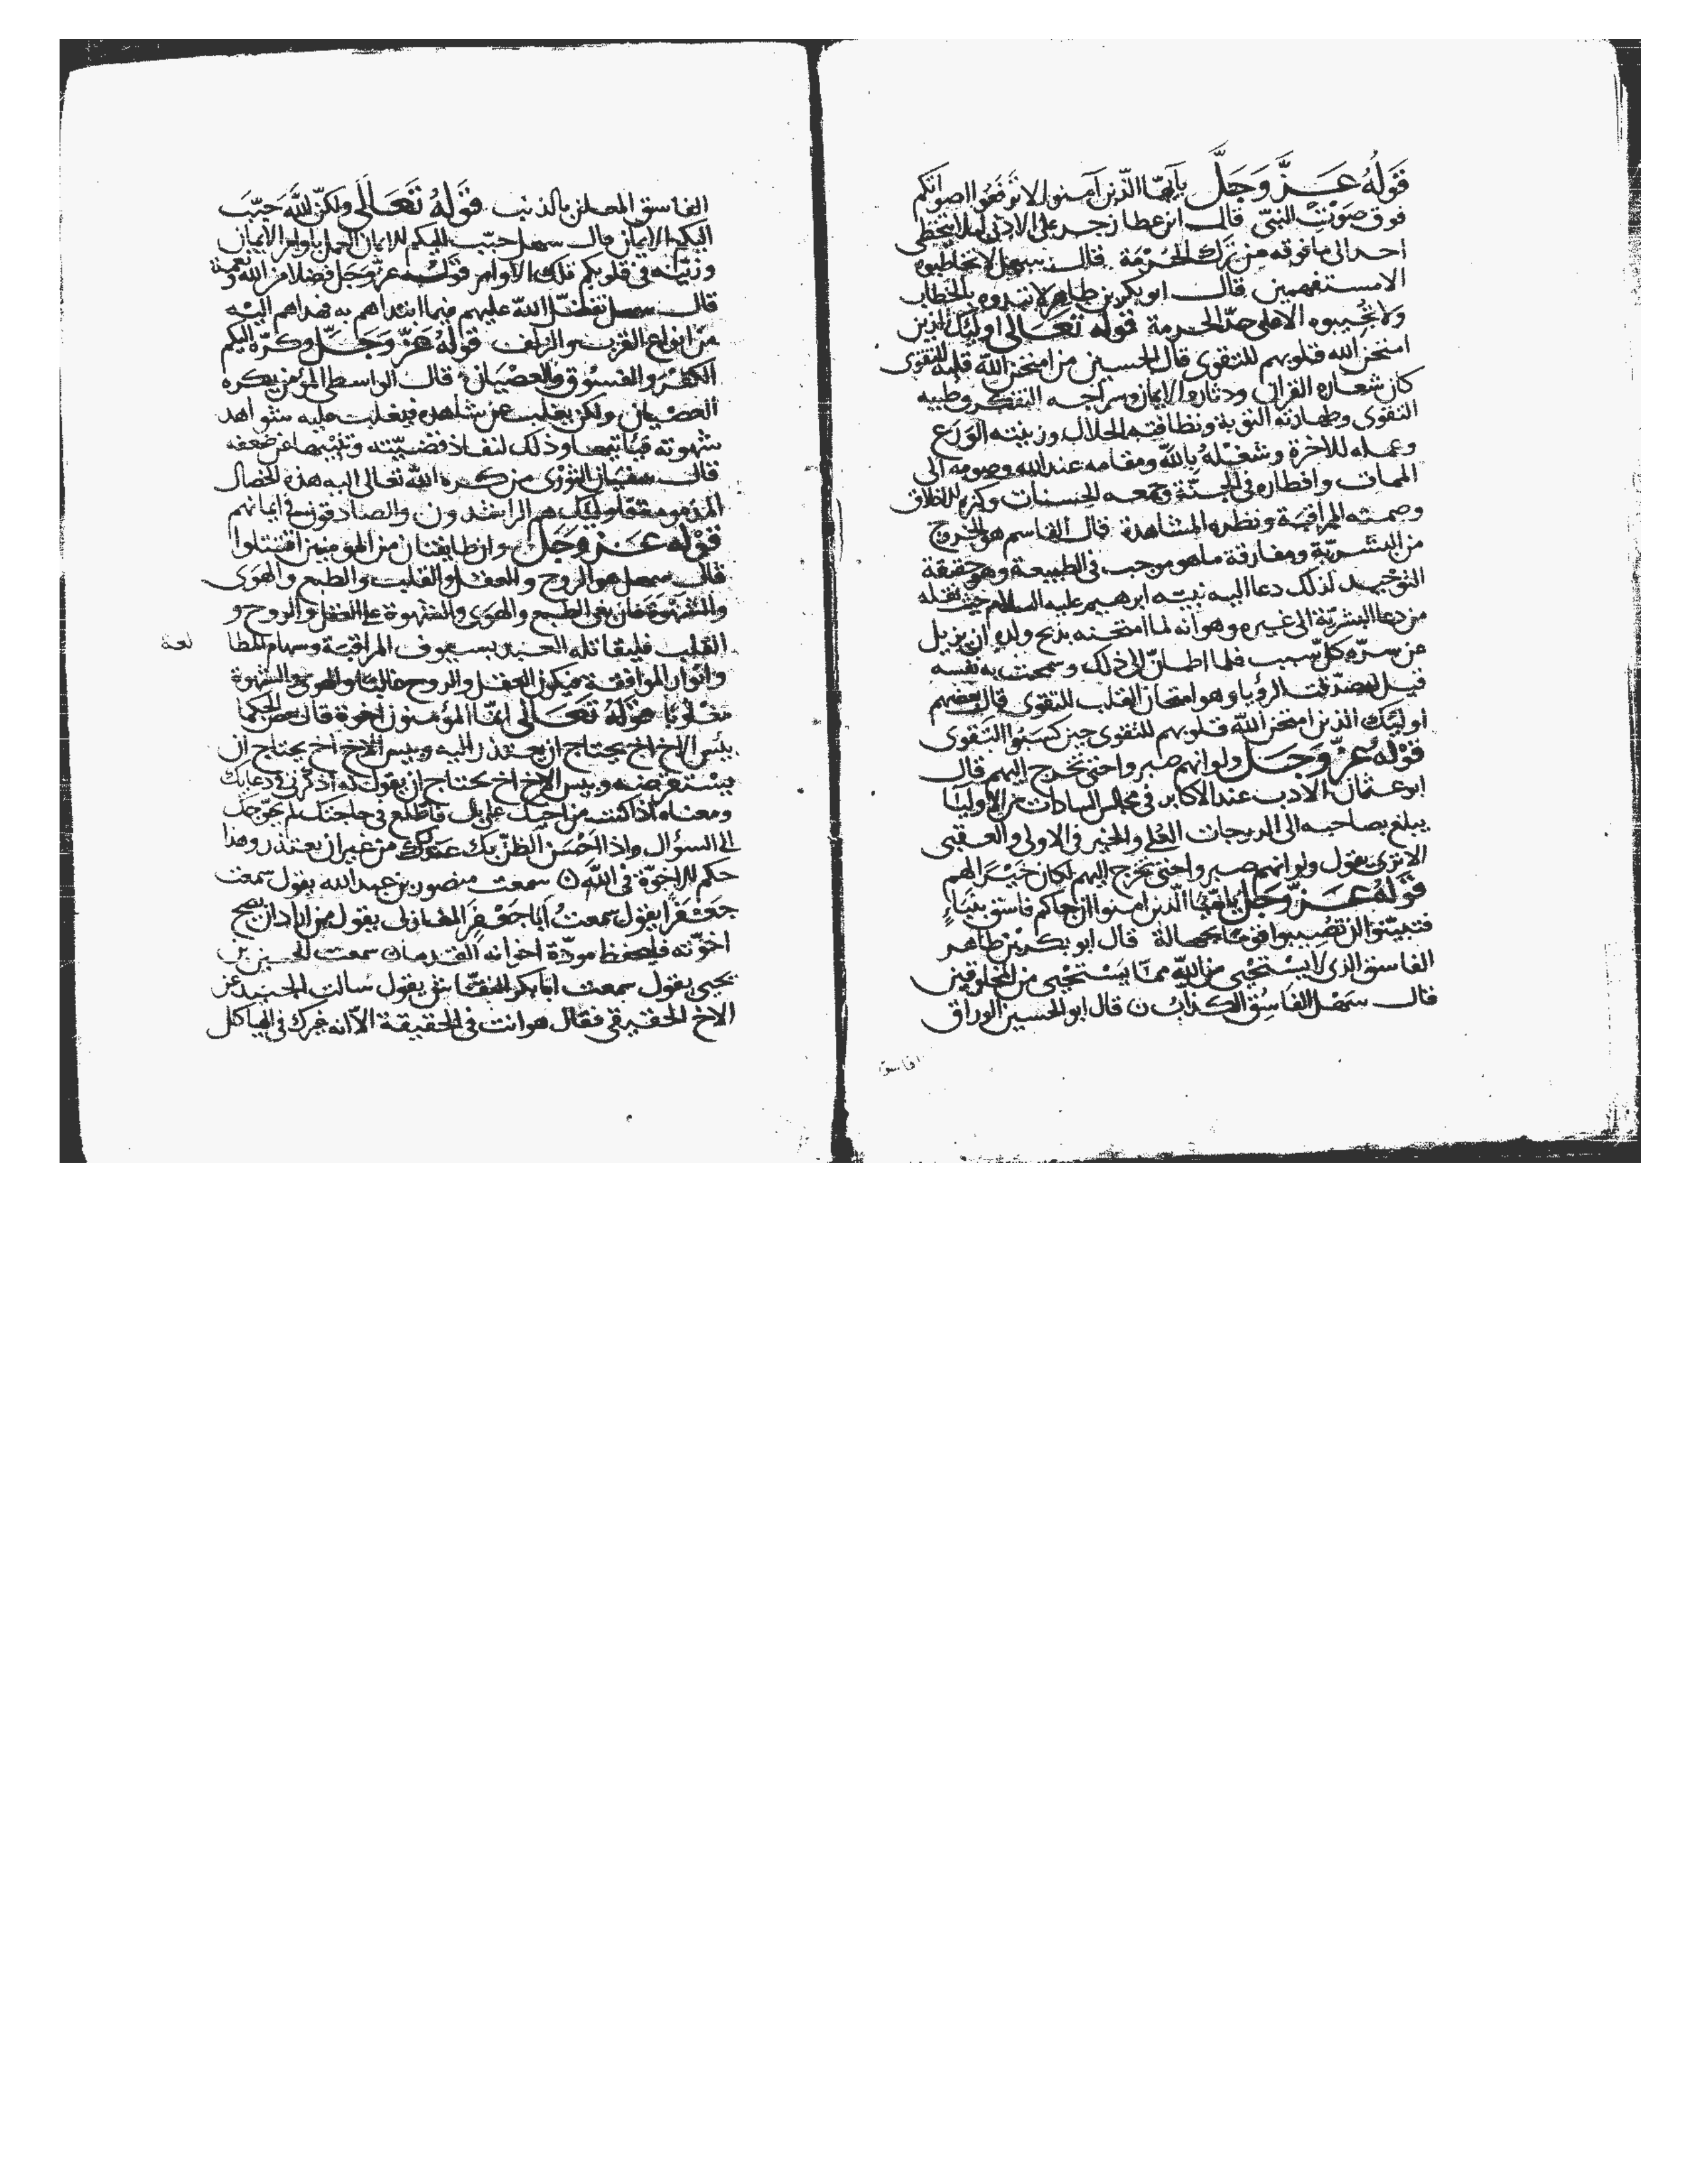 قَوْلُهُ عَزَّ وَجَلَّ يا أيّها الّذين آمنوا لا ترفعوا اصواتكم
فوق صَوْتِ النبىّ قال ابن عطا زجر على الادنى لئلا يتخطى
احد الى ما فوقه من ترك الحُرْمَة قال سهل لا تخاطبوه
الا مستفهمين قال ابو بكر بن طاهر لا تبدوه بالخطاب
ولا تجيبوه الا على حدّ الحرمة قوله تَعَالى اوليك الذين
امتحن الله قلوبهم للتقوى قال الحسين من امتحن اللّه قلبه للتقوى
كان شعاره القران ودثاره الايمان وسراجه التفكر وطيبه
التقوى وطهارته التوبة ونظافته الحلال وزينته الوَرَع
وعمله للاخرة وشغْلهُ بِاللّه ومقامه عند الله وصومه الى
الممات وافطاره فى الجنّة وجمعه الحسنات وكنزه الاخلاق
وصمته المراقبة ونظره المشاهدة قال القاسم هو الخروج
من البشريّة ومفارقة ما هو موجب فى الطبيعة وهو حقيقة
التوْحيد لذلك دعا اليه نبيّه ابرهيم عليه السلام حيث نقله
من دعا البشريّة الى غيره وهو انه لما امتحنه بذبح ولده ان يزيل
عن سرّه كلّ سبب فلما اطمانّ الى ذلك وسمحت به نفسه
قيل له صدّقت الرؤيا وهو امتحان القلب للتقوى قال بعضهم
اوليك الذين امتحن اللّه قلوبهم للتقوى حين كسَبُوا التقوى
قَوْلُهُ عزّ وَجَلّ ولو انهم صبروا حتى تخرج اليهم قال
ابو عثمان الادب عند الاكابر فى مجلس السادات من الاوليا
يبلغ بصاحبه الى الدرجات العُلى والخير فى الاولى والعقبى
الا ترى يقول ولو انهم صبروا حتى تخرج اليهم لكان خَيْرًا لهم
قَوْلُهُ عَزّ وَجَلّ يا ايّها الّذين امنوا ان جاكم فاسق بنبَاٍ
فتبيّنوا ان تُصِيبوا قومًا بجهالة قال ابو بكر بن طاهر
الفاسق الذى لا يسْتَحْيى من اللّه ممّا يَسْتَحْيى من المخلوقين
قال سَهْل الفَاسِق الكذاب ن قال ابو الحسين الوراق
الفاسق المعلن بالذنب قَوْلهُ تَعَالَى ولكنّ اللّهَ حبّبَ
اليكم الايمان قال سهل حبّب اليكم الايمان العمل باوامر الايمان
وزيّنه فى قلوبكم تلك الاوامر قَوْله عزّ وَجَل فضلا من الله ونعمة
قال سهل تفضّل اللّه عليهم فيما ابتداهم به فهداهم اليه
من انواع القرب والزلف قَوْلهُ عَزّ وَجَلّ وكرّه اليكم
الكُفْرَ والفسُوقَ والعصْيَانَ قال الواسطى المؤمن يكره
العصْيان ولكن يغلب عن شاهده فيغلب عليه شواهد
شهوته فياتيها وذلك لنفاذ قضيّته وتنبيها عن ضعفه
قال سفيان الثوْرى من كره اللّه تعالى اليه هذه الخصال
المذمومة فاوليك هم الراشدون والصادقون فى ايمانهم
قوْله عَزّ وَجَلّ وان طايفتان من المؤمنين اقتتلوا
قال سهل هو الروح والعقل والقلب والطبع والهوَى
والشهْوَة فان بغى الطبع والهوَى والشهوة على العقل والروح و
القلب فليقاتله العبد بسيوف المراقبة وسهام المطا
لعة
وانوار الموافقة فيكون العقل والروح غالبًا والهوى والشهوة
مغلوبًا قَوْلهُ تَعَالى انمّا المؤمنون اخوة قال بعض الحكما
بئْس الاخ اخ يحتاج ان يعتذر اليه وبيس الاخ اخ يحتاج ان
ومعناه اذا كنت من اخيك على بال فاطّلع فى حاجتك لم يحوجك
الى السؤال واذا احْسَن الظنّ بك عذرك من غير ان يعتذر وهذا
حكم الاخوّة فى اللّه ن سمعت منصور بن عبد الله يقول سمعت
جَعْفَرًا يقول سمعتُ اَبَا جَعْفرٍ المغازلى يقول من اراد ان تصح
اخوّته فليحفظ مودّة اخوانه القدمان سمعت الحسين بن
يحيى يقول سمعت ابا بكر النقّاش يقول سالت الجنيد عن
الاخ الحقيقى فقال هو انت فى الحقيقة الّا انه غيرك فى الهياكل